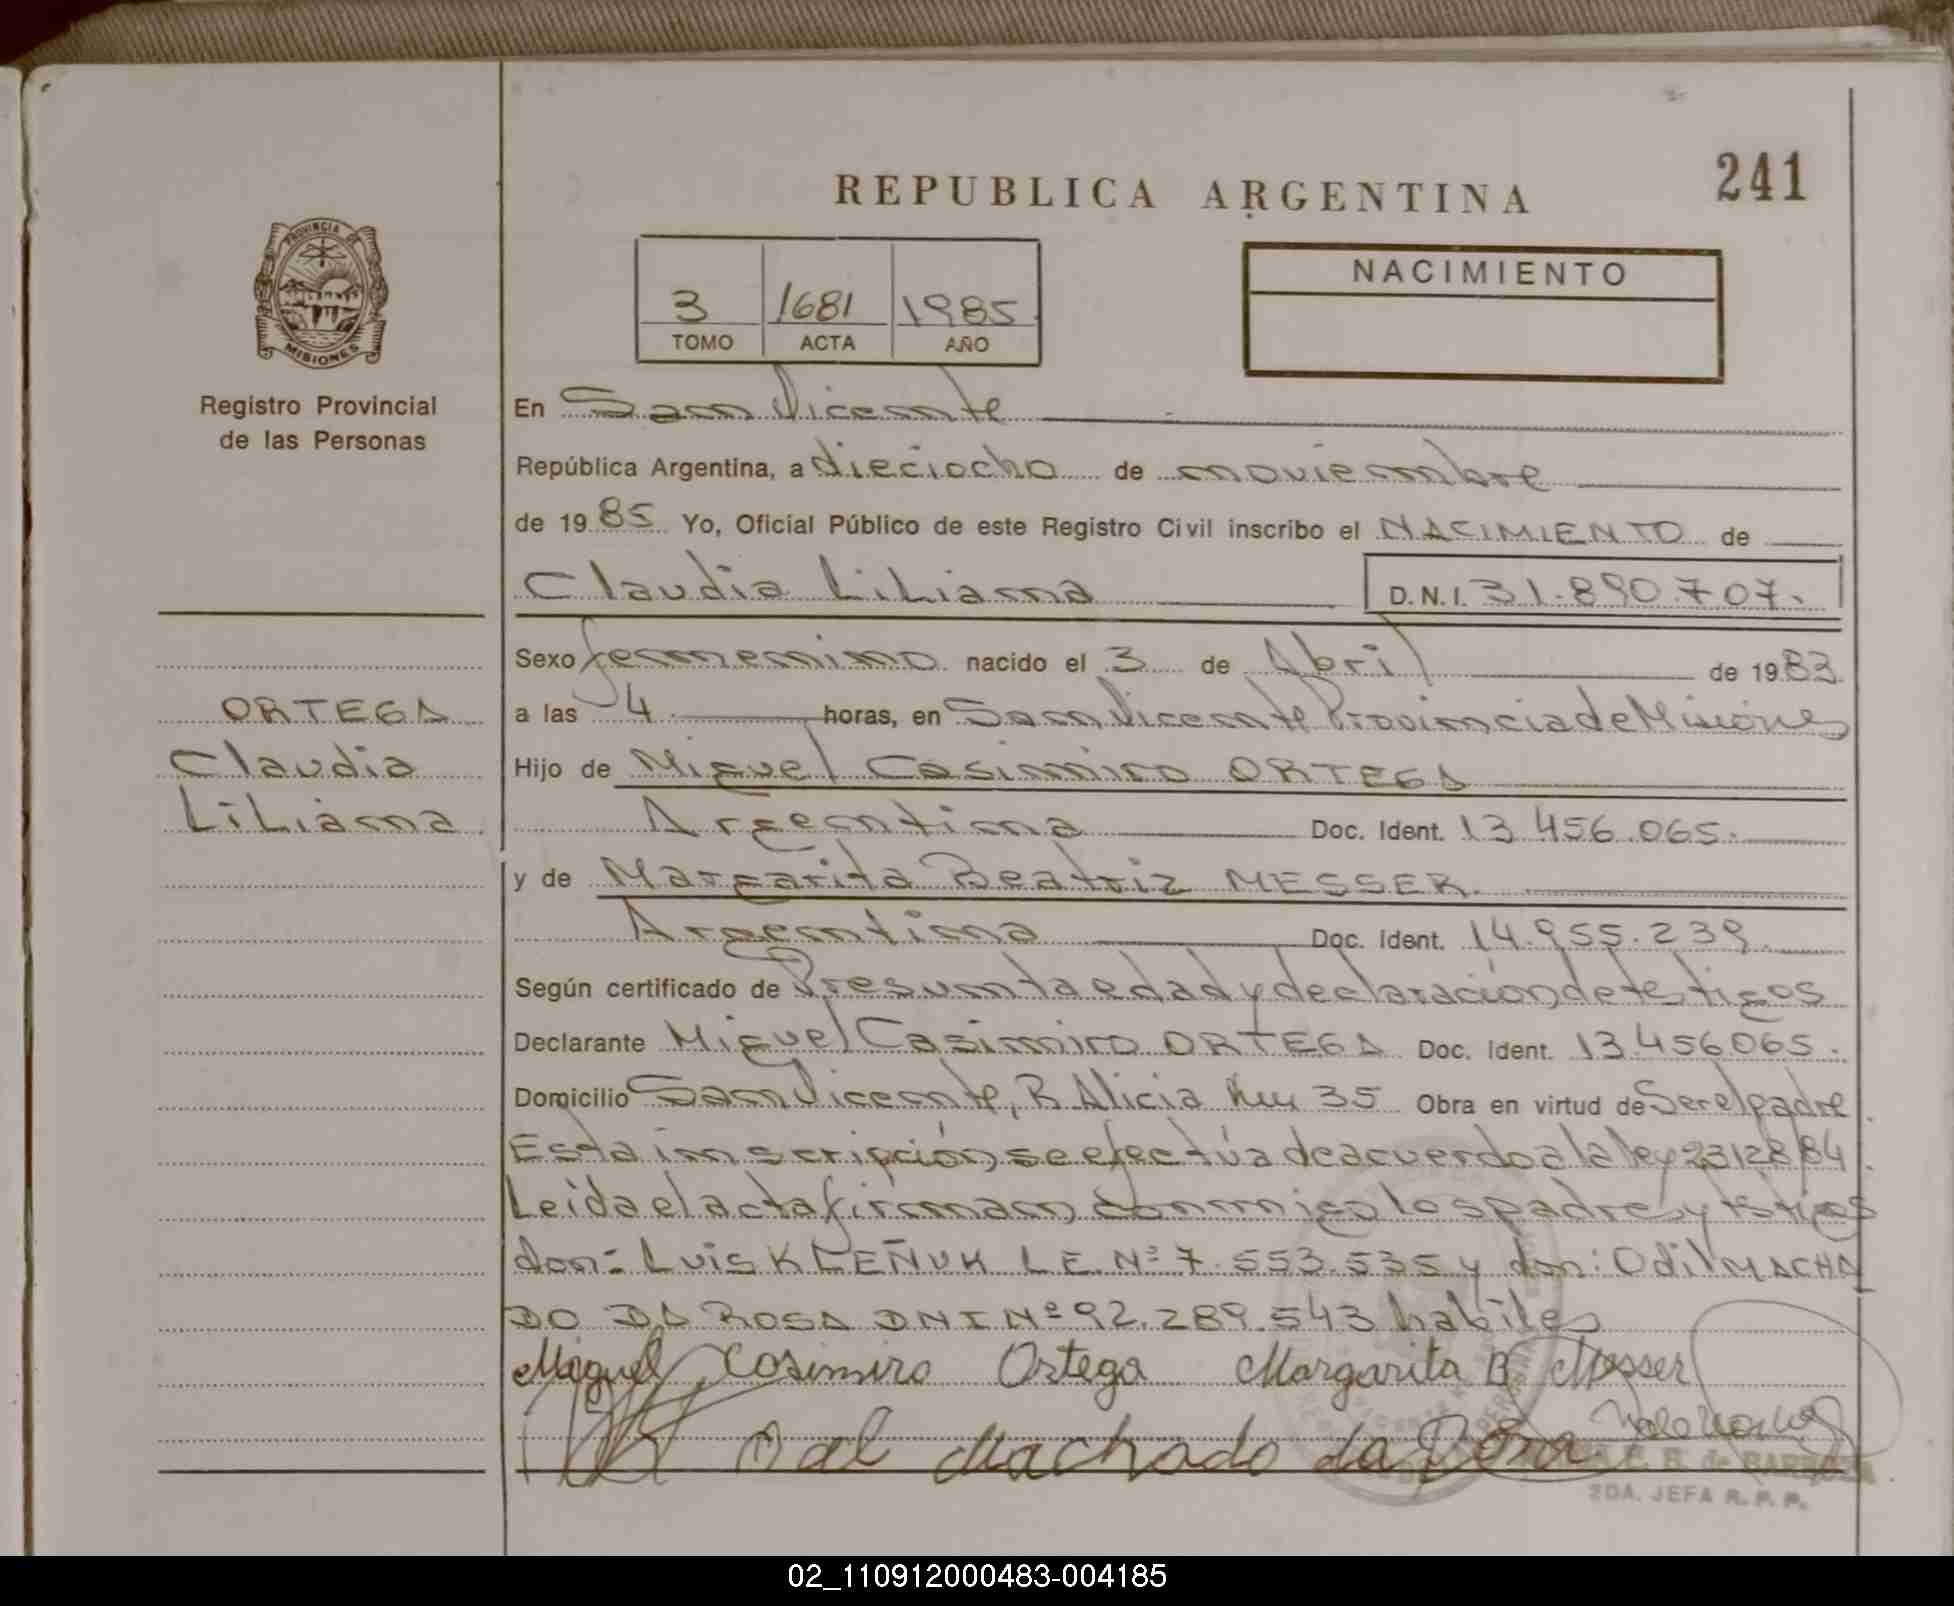 241
REPUBLICA ARGENTINA
PROVINCIA DE
MISIONES
Registro Provincial
de las Personas
3 1681 1985
TOMO ACTA AÑO
NACIMIENTO
En San Vicente
República Argentina, a dieciocho de noviembre
de 1985 Yo, Oficial Público de este Registro Civil inscribo el NACIMIENTO de
Claudia Liliana D.N.I. 31.890.707.
Sexo femenino nacido el 3 de Abril de 1983
a las 4 horas, en San Vicente Provincia de Misiones
Hijo de Miguel Casimiro ORTEGA
Argentina Doc. Ident. 13.456.065.
y de Margarita Beatriz MESSER.
Argentina Doc. Ident. 14.955.239
Según certificado de Presunta edad y declaración de testigos
Declarante Miguel Casimiro ORTEGA Doc. Ident. 13.456065.
Domicilio San Vicente, R. Alicia 35 Obra en virtud de Ser el padre
Esta inscripción se efectúa de acuerdo a la ley 23128/84.
Leida el acta firman conmigo los padres y testigos
don: Luis KLEÑUK L.E. Nº 7.553.535 y don: Odil MACHA
DO DA ROSA DNI Nº 92.289.543 habiles
Miguel Casimiro Ortega Margarita B Messer
Machado da Rosa
B. de
2DA. JEFA R. P. P.
ORTEGA
Claudia
Liliana
02_110912000483-004185